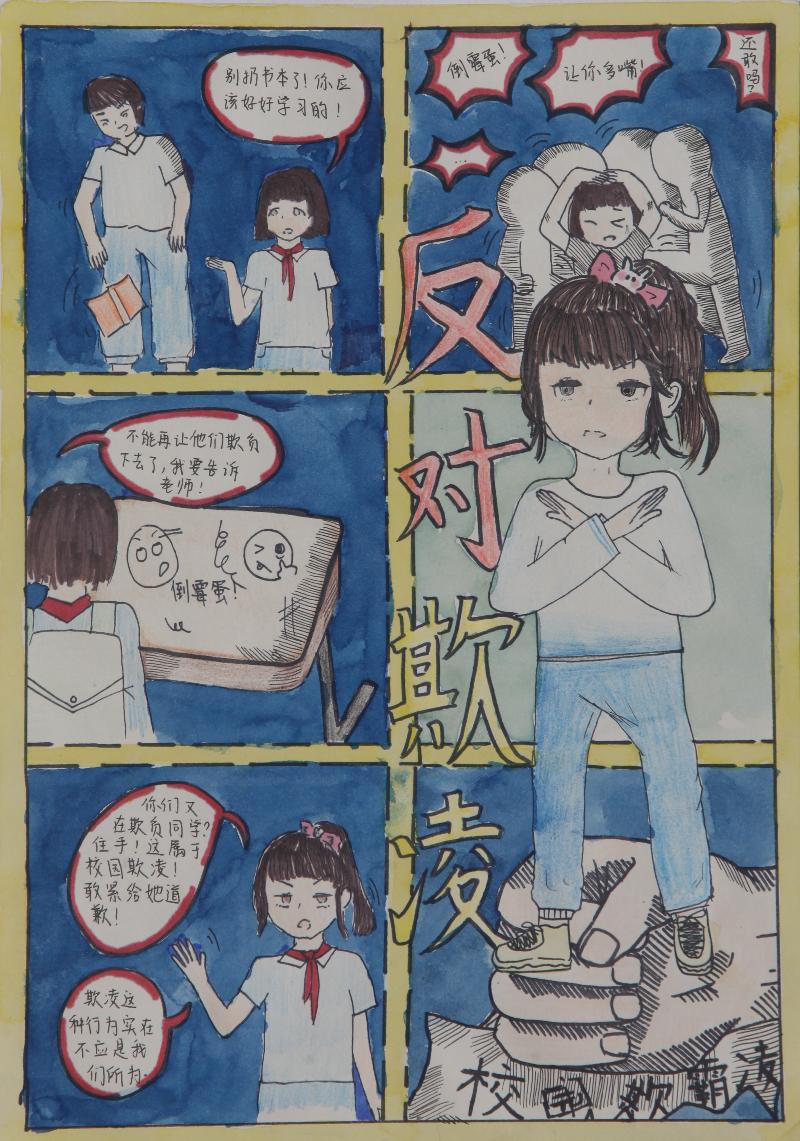 别扔书本了！你应
该好好学习的！
倒霉蛋！
让你多嘴！
还敢吗？
...
反
对
欺
凌
不能再让他们欺负
下去了，我要告诉
老师！
倒霉蛋！
你们又
在欺负同学？
住手！这属于
校园欺凌！
敢紧给她道
歉！
欺凌这
种行为实在
不应是我
们所为.
校园欺霸凌